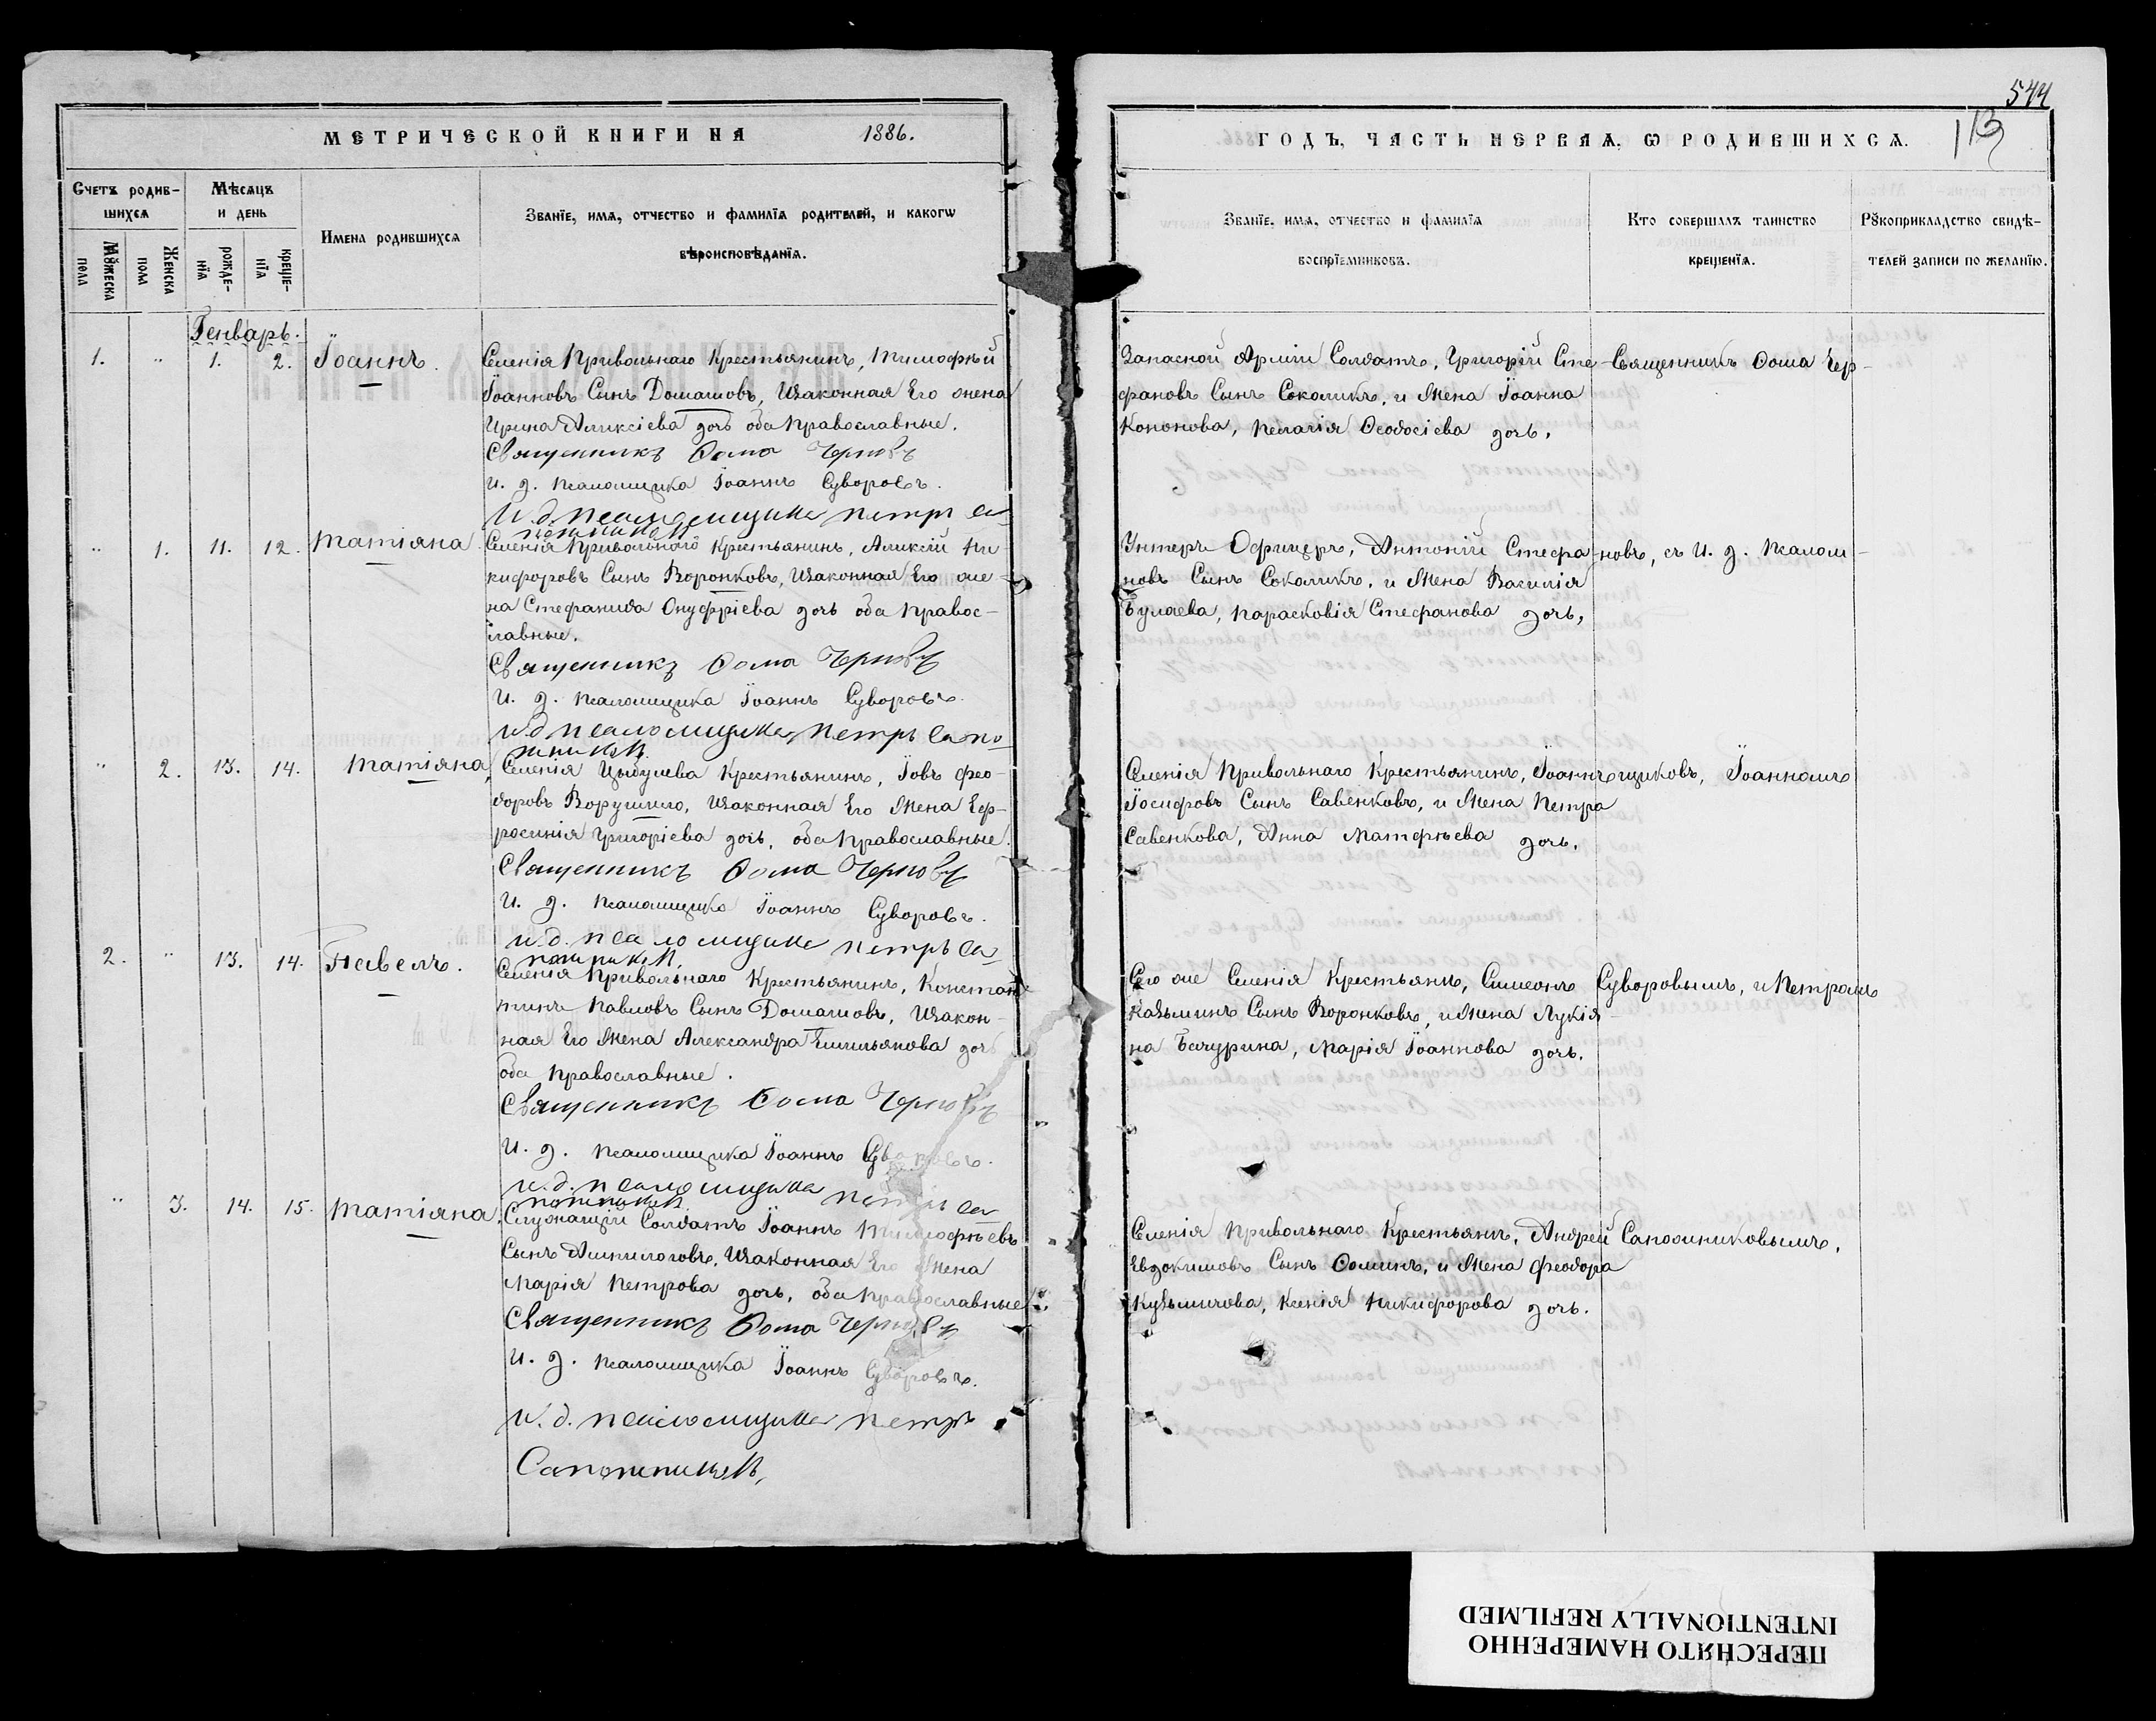 МЕТРИЧЕСКОЙ КНИГИ НА 1886.
Счетъ родив-
шихся
Мѣсяцъ
и день
Имена родившихся
Званїе, имя, отчество и фамилїя родителей, и какогѡ
вѣроисповѣданїя.
Мꙋжеска
пола
Женска
пола
рожде-
нїя
креще-
нїя
Генварь.
1. " 1. 2. Іоаннъ.
Селенія Привольнаго Крестьянинъ, Тимофѣй
Іоанновъ Сынъ Домашовъ, Изаконная Его жена
Ирина Аликсіева дочь оба Православные.
Священникъ Ѳома Черновъ
И. д. псаломщика Іоаннъ Суворовъ.
И. д. псаломщика Петръ Са-
пожников
" 1. 11. 12. Татіана
Селенія Привольнаго Крестьянинъ, Аликсій Ни
кифоровъ Сынъ Воронковъ, Изаконная Его же
на Стефанида Онуфріева дочь оба Правос-
лавные.
Священникъ Ѳома Черновъ
И. д. псаломщика Іоаннъ Суворовъ.
И. д. псаломщика Петръ Сапо-
жников
" 2. 13. 14. Татіана
Селенія Цыбулева Крестьянинъ, Іовъ Фео-
доровъ Ворушило, Изаконная Его Жена Еф-
росинія Григоріева дочь, оба Православные.
Священникъ Ѳома Черновъ
И. д. псаломщика Іоаннъ Суворовъ.
И. д. псаломщика Петръ Са-
пожников
2. " 13. 14. Павелъ.
Селенія Привольнаго Крестьянинъ, Констан
тинъ Павловъ Сынъ Домашовъ, Изакон-
ная Его Жена Александра Емильянова доч
оба Православные.
Священникъ Ѳома Черновъ
И. д. псаломщика Іоаннъ Суворовъ.
И. д. псаломщика Петръ Са
пожников
" 3. 14. 15. Татіана.
Служащій Солдатъ Іоаннъ Тимофѣевъ
Сынъ Ашпилоговъ, Изаконная Его Жена
Марія Петрова дочь, оба Православные
Священникъ Ѳома Черновъ
И. д. псаломщика Іоаннъ Суворовъ.
И. д. псаломщика Петръ
Сапожников,
544
113
ГОДЪ, ЧАСТЬ ПЕРВАЯ, Ѡ РОДИВШИХСЯ.
Званїе, имя, отчество и фамилїя
воспрїемниковъ.
Кто совершалъ таинство
крещенїя.
Рꙋкоприкладство свидѣ-
телей записи по желанїю.
Запасной Арміи Солдатъ, Григорій Сте
фановъ Сынъ Соколикъ, и Жена Іоанна
Кононова, Пелагія Ѳеодосіева дочь.
Священникъ Ѳома Чер-
Унтеръ Офицеръ, Антоній Стефа
новъ Сынъ Соколикъ, и Жена Василія
Булаева, Парасковія Стефанова дочь,
новъ, съ И. д. псалом-
Селенія Привольнаго Крестьянинъ, Іоаннъ
Іосифовъ Сынъ Савенковъ, и Жена Петра
Савенкова, Анна Матфѣева дочь.
щиковъ, Іоанномъ
Его же Селенія Крестьянъ, Симеонъ
Казьминъ Сынъ Воронковъ, и Жена Лукія-
на Бачурина, Марія Іоаннова дочь.
Суворовымъ, и Петромъ
Селенія Привольнаго Крестьянъ, Андрей
Евдокимовъ Сынъ Ѳоминъ, и Жена Феодора
Кузьмичова, Ксенія Никифорова дочь.
Сапожниковымъ.
ПЕРЕСНЯТО НАМЕРЕННО
INTENTIONALLY REFILMED